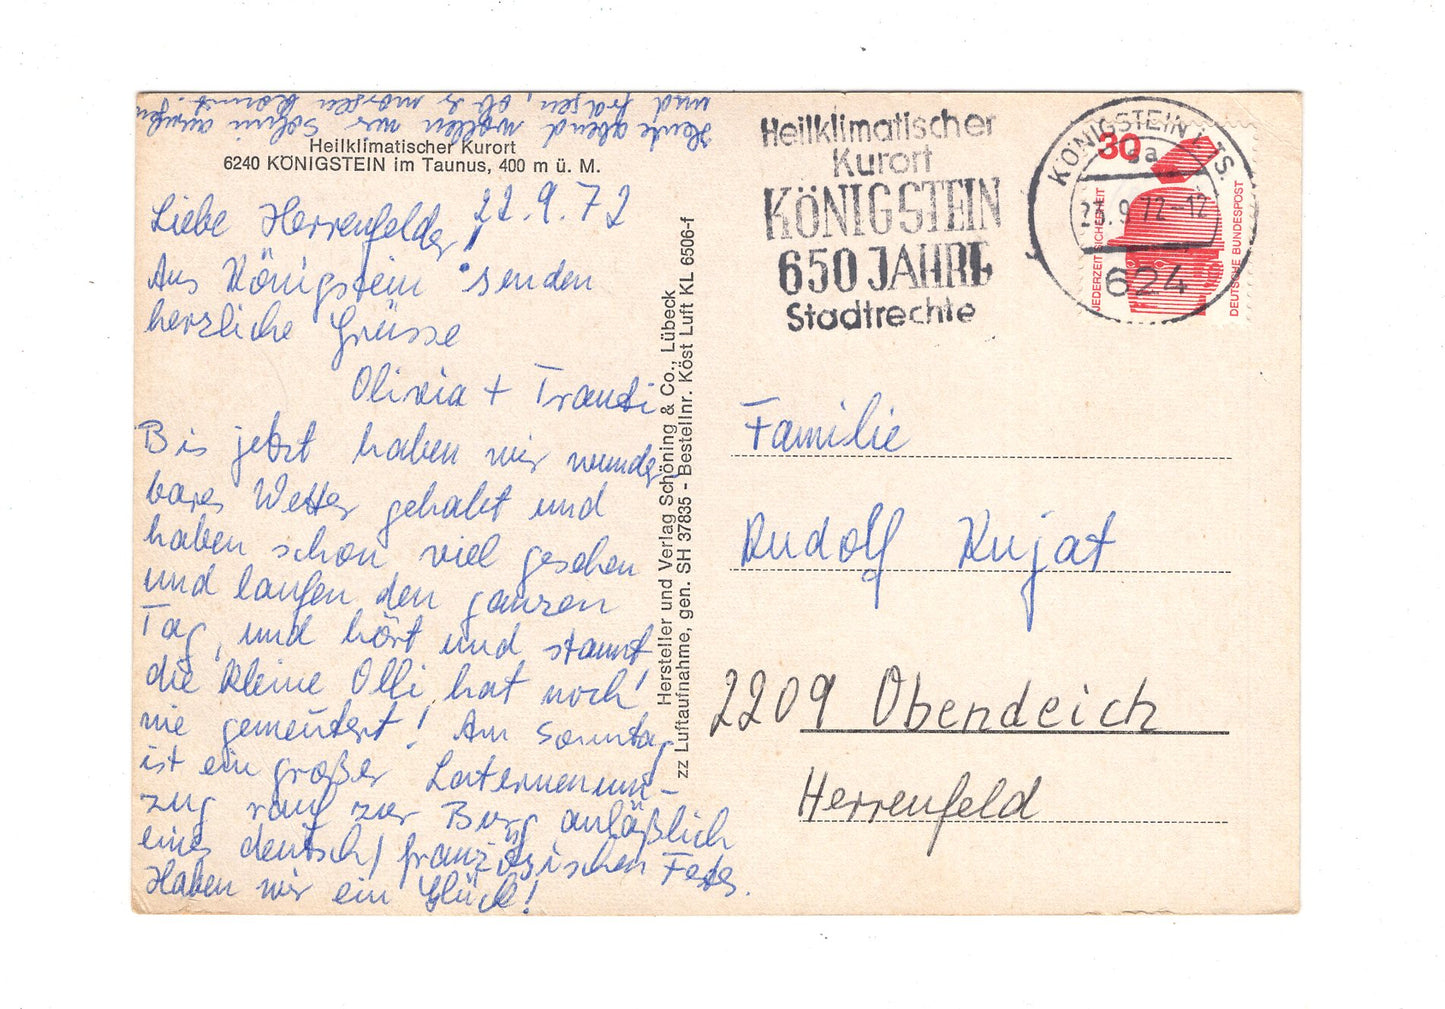 Heute abend wollen wir Sohni anrufen
und fragen, ob er morgen kommt.
Heilklimatischer Kurort
6240 KÖNIGSTEIN im Taunus, 400 m ü. M.
22.9.72
Liebe Herrenfelder!
Aus Königstein senden
herzliche Grüsse
Olivia + Traudi
Bis jetzt haben wir wunder-
bares Wetter gehabt und
haben schon viel gesehen
und laufen den ganzen
Tag, und hört und staunt
die kleine Olli, hat noch
nie gemeutert! Am Sonntag
ist ein großer Laternenum-
zug rauf zur Burg anläßlich
eines deutsch/französischen Festes.
Haben wir ein Glück!
Hersteller und Verlag Schöning & Co., Lübeck
zz Luftaufnahme, gen. SH 37835 - Bestellnr. Köst Luft KL 6506-f
Heilklimatischer
Kurort
KÖNIGSTEIN
650 JAHRE
Stadtrechte
KÖNIGSTEIN, TS.
sa
23.9.72-12
624
30
JEDERZEIT SICHERHEIT
DEUTSCHE BUNDESPOST
Familie
Rudolf Kujat
2209 Obendeich
Herrenfeld